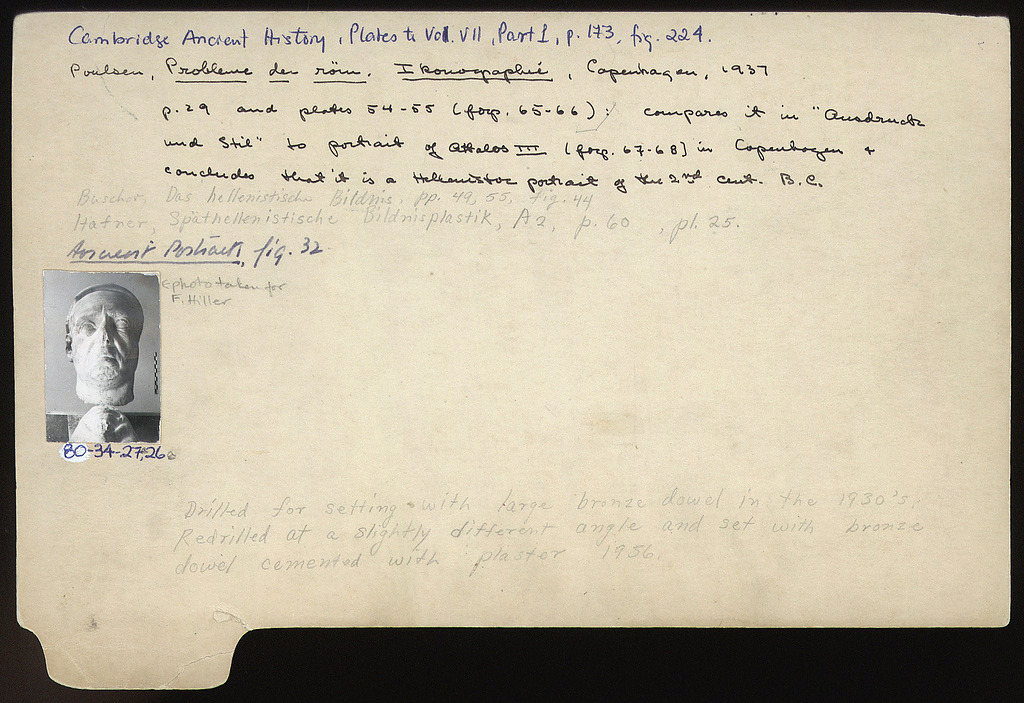 Cambridge Ancient History, Plates to Vol. VII, Part 1, p. 173, fig. 224.
Poulsen, Probleme der röm. Ikonographie, Copenhagen, 1937
p. 29 and plates 54-55 (figs. 65-66): compares it in "Ausdruck
und Stil" to portrait of Attalos III (figs. 67-68) in Copenhagen +
concludes that it is a Hellenistic portrait of the 2nd cent. B.C.
Buschor, Das hellenistische Bildnis, pp. 49, 55, fig. 44
Hafner, Späthellenistische Bildnisplastik, A2, p. 60 , pl. 25.
Ancient Portraits, fig. 32
←photo taken for
F. Hiller
80-34-27,26
Drilled for setting with large bronze dowel in the 1930's.
Redrilled at a slightly different angle and set with bronze
dowel cemented with plaster 1956.